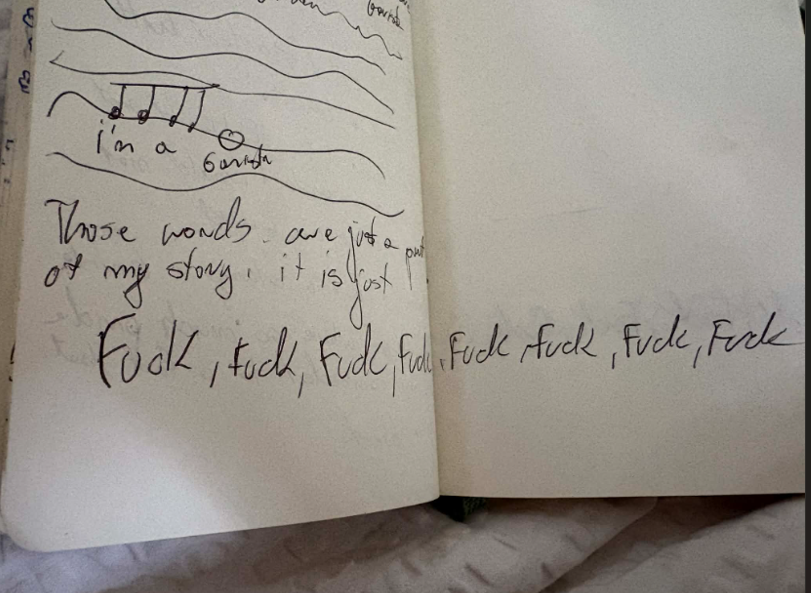 i'm a
Those words are just a
of my story, it is just
Fuck, fuck, Fuck, fuck, Fuck, fuck, Fuck, Fuck